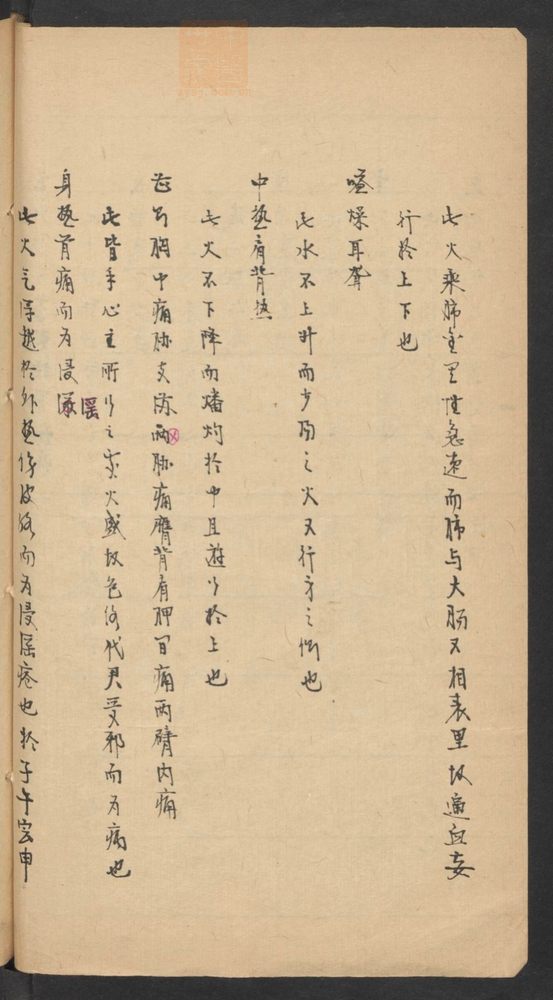 此火乘肺金里性急速而肺与大肠又相表里故逼血妄
行於上下也
嗌燥耳聋
此水不上升而少阴之火又行方之偶也
中热肩背热
此火不下降而燔灼於中且游行於上也
甚则胸中痛胁支满两胁痛膺背肩胛间痛两臂内痛
此皆手心主所行之处火盛故包络代君受邪而为病也
身热骨痛而为浸淫
此火气浮越於外热伤皮络而为浸淫疮也於子午寅申